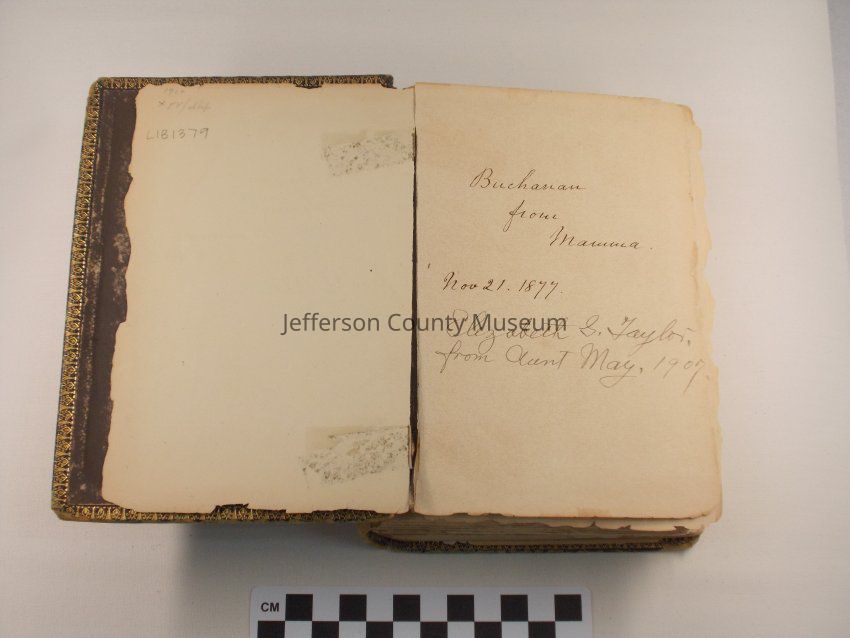 LIB1379
Buchanan
from
Mamma.
Nov 21. 1877.
Jefferson County Museum
Elizabeth G. Taylor.
from Aunt May, 1907.
CM